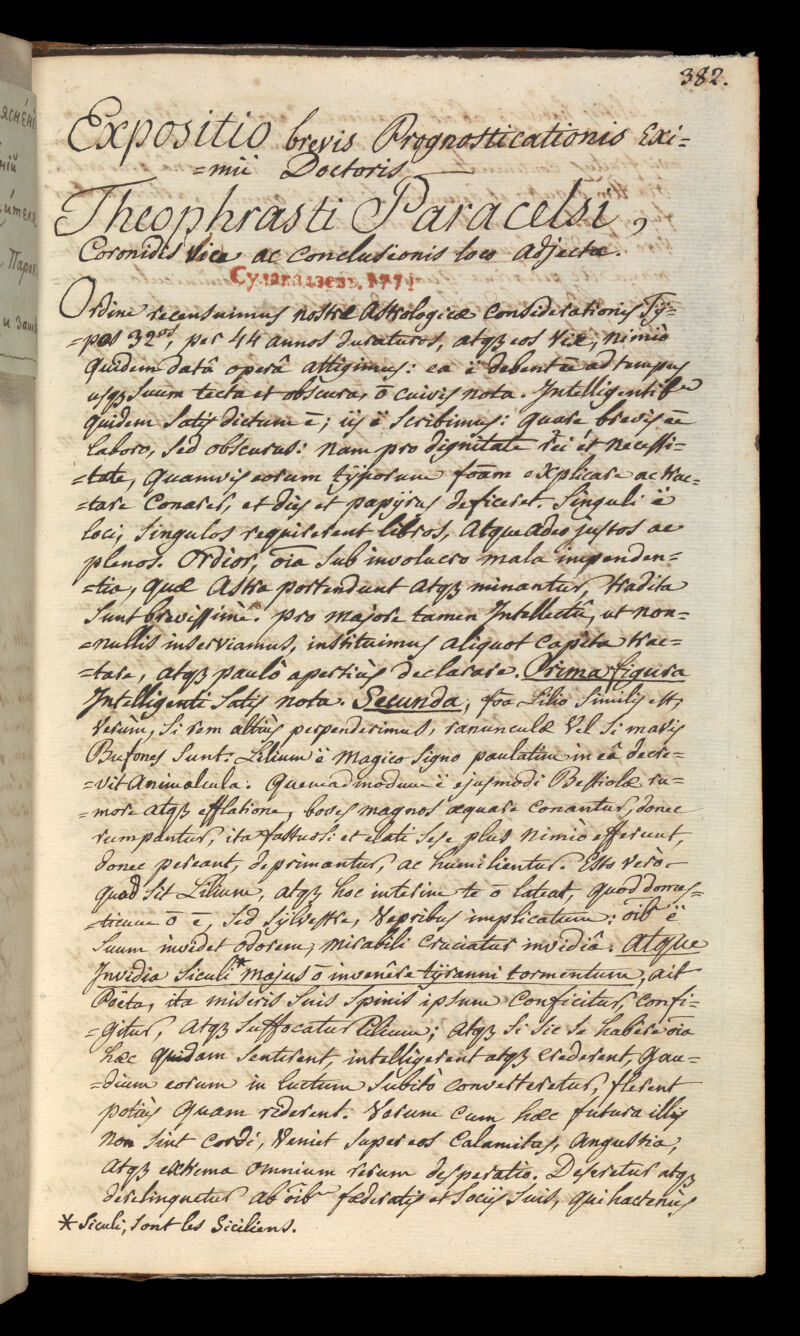 382.
Expositio brevis Prognosticationis Exi=
=mii Doctoris
Theophrasti Paracelsi,
Coronidis Vice ac conclusionis loco adjecta.
Сулакадзевъ. 1771
Ordine recensuimus nostræ Astrologicæ Considerationis Tÿ=
=pos 32ᵒˢ, per 44 annos duraturos, atqꝫ eos Vix, nimio
quidem datâ operâ attigimus: ea ï debent ēē ad tempus
usqꝫ suum tecta et obscura, ō cuivis nota. Intelligentib⁹
quidem satis dictum ē; ijs ï scribimus: quare brevis ēē
laboro, sed obscurus: nam pro dignitate rei et necessi=
=tate, quamvis eorum tÿporum foām explicare ac trac=
=tare conarer, et dies et papÿrus deficeret. Singuli ï
loci, singulos requirerent libros, atque adeo justos ac
plenos. Ordior, oīa sub involucro mala impenden=
=tia, quæ Astra portendunt atqꝫ minantur, tradita
sunt brevissimè. pro majore tamen Intellectû, ut non=
=nullis inserviamus, instituimus aliquot capita trac=
=tare, atqꝫ paulò apertiùs declarare. Prima figura
Intelligenti satis nota. Secunda, foā Lilio similis est,
verùm, si rem altiùs perpenderimus, ranunculæ Vel si mavis
Bufones sunt. Lilium ï magico signo paulatim in eâ decre=
=vit animalcula. Quemadmodum ï ejusmodi Bestiolæ ru=
=more atqꝫ efflatione, boves magnos æquare conantur, donec
rumpantur, ita fastuosi et elati sese plus nimiò efferunt,
donec pereant, deprimantur, ac humilientur. Esto verò
quod sit Lilium, atqꝫ hoc interim te ō lateat, quod domes=
=ticum ō ē, sed sÿlvestre, Vepribus implicatum: oīb⁹ ï
suum invidet odorem, mirabili cruciatur invidiâ. Atque
Invidia Siculi* majus ō invenêre tÿranni tormentum, ait
Poëta, ita miseris suis spinis ipsum conficitur, confi=
=gitur, atqꝫ suffocatur Lilium; atqꝫ si sic se habêre oīa
hæc quidam sentirent, intelligerent atqꝫ crederent, gau=
=dium eorum in luctum subitò converteretur, flerent
potiùs quam riderent. Verum cum hæc futura illis
non sint cordi, Veniet super eos Calamitas, angustia,
atqꝫ extrema omnium rerum desperatio. Deseretur atqꝫ
derelinquetur ab oīb⁹ fœderatis et sociis suis, qui hactenùs
* Siculi, sont les Siciliens.